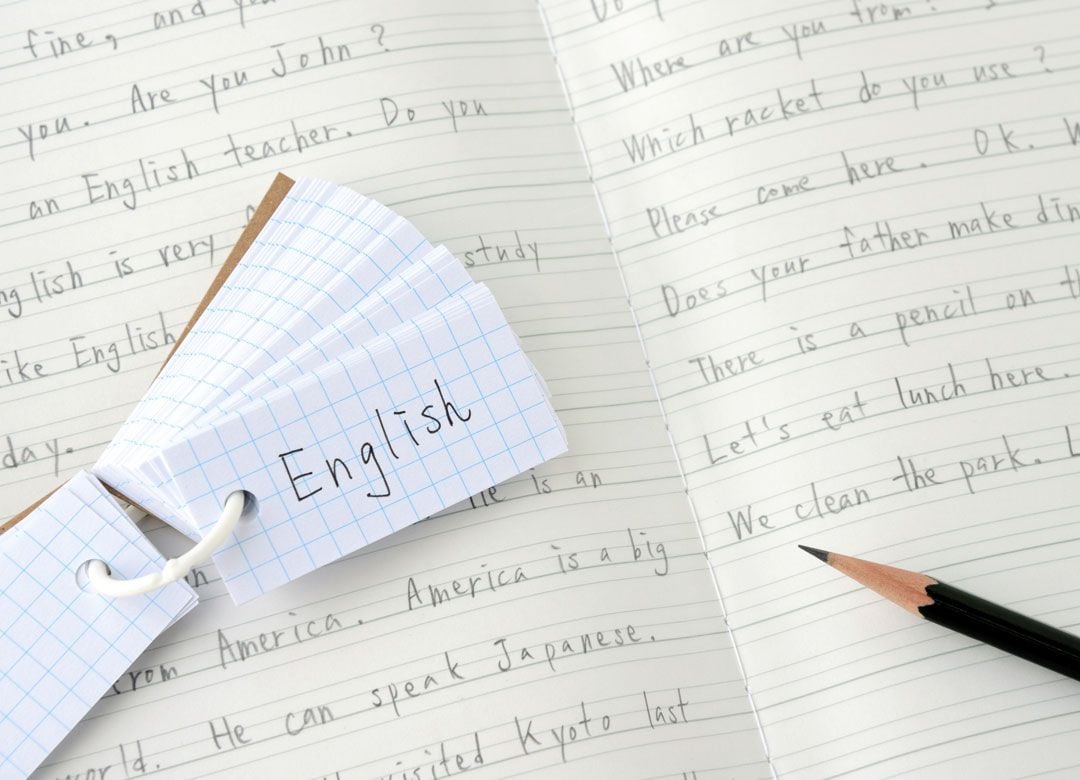 fine, and you
you. Are you John?
an English teacher. Do you
is very
study
like English
day.
English
He is an
from America. America is a big
world. He can speak Japanese.
visited Kyoto last
Do
Where are you from?
Which racket do you use?
Please come here. OK.
Does your father make
There is a pencil on
Let's eat lunch here.
We clean the park.